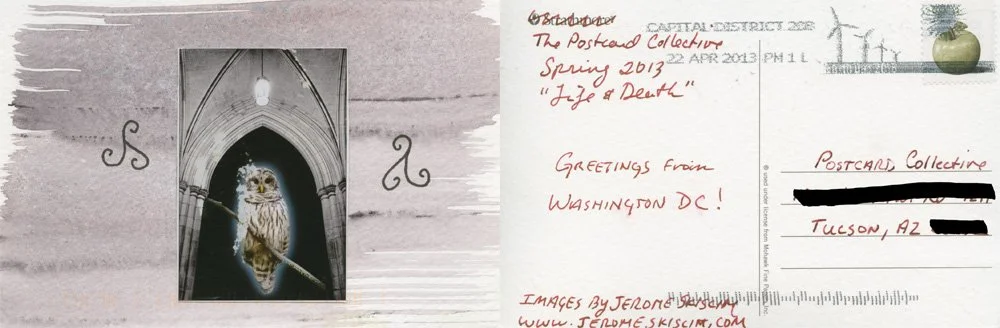 The Postcard Collective
Spring 2013
"Life & Death"
CAPITAL DISTRICT 208
22 APR 2013 PM 1 L
Greetings from
Washington DC!
Postcard Collective
Tucson, AZ
Images by Jerome Skiscim
www.jeromeskiscim.com
® used under license from Mohawk Fine Papers Inc.